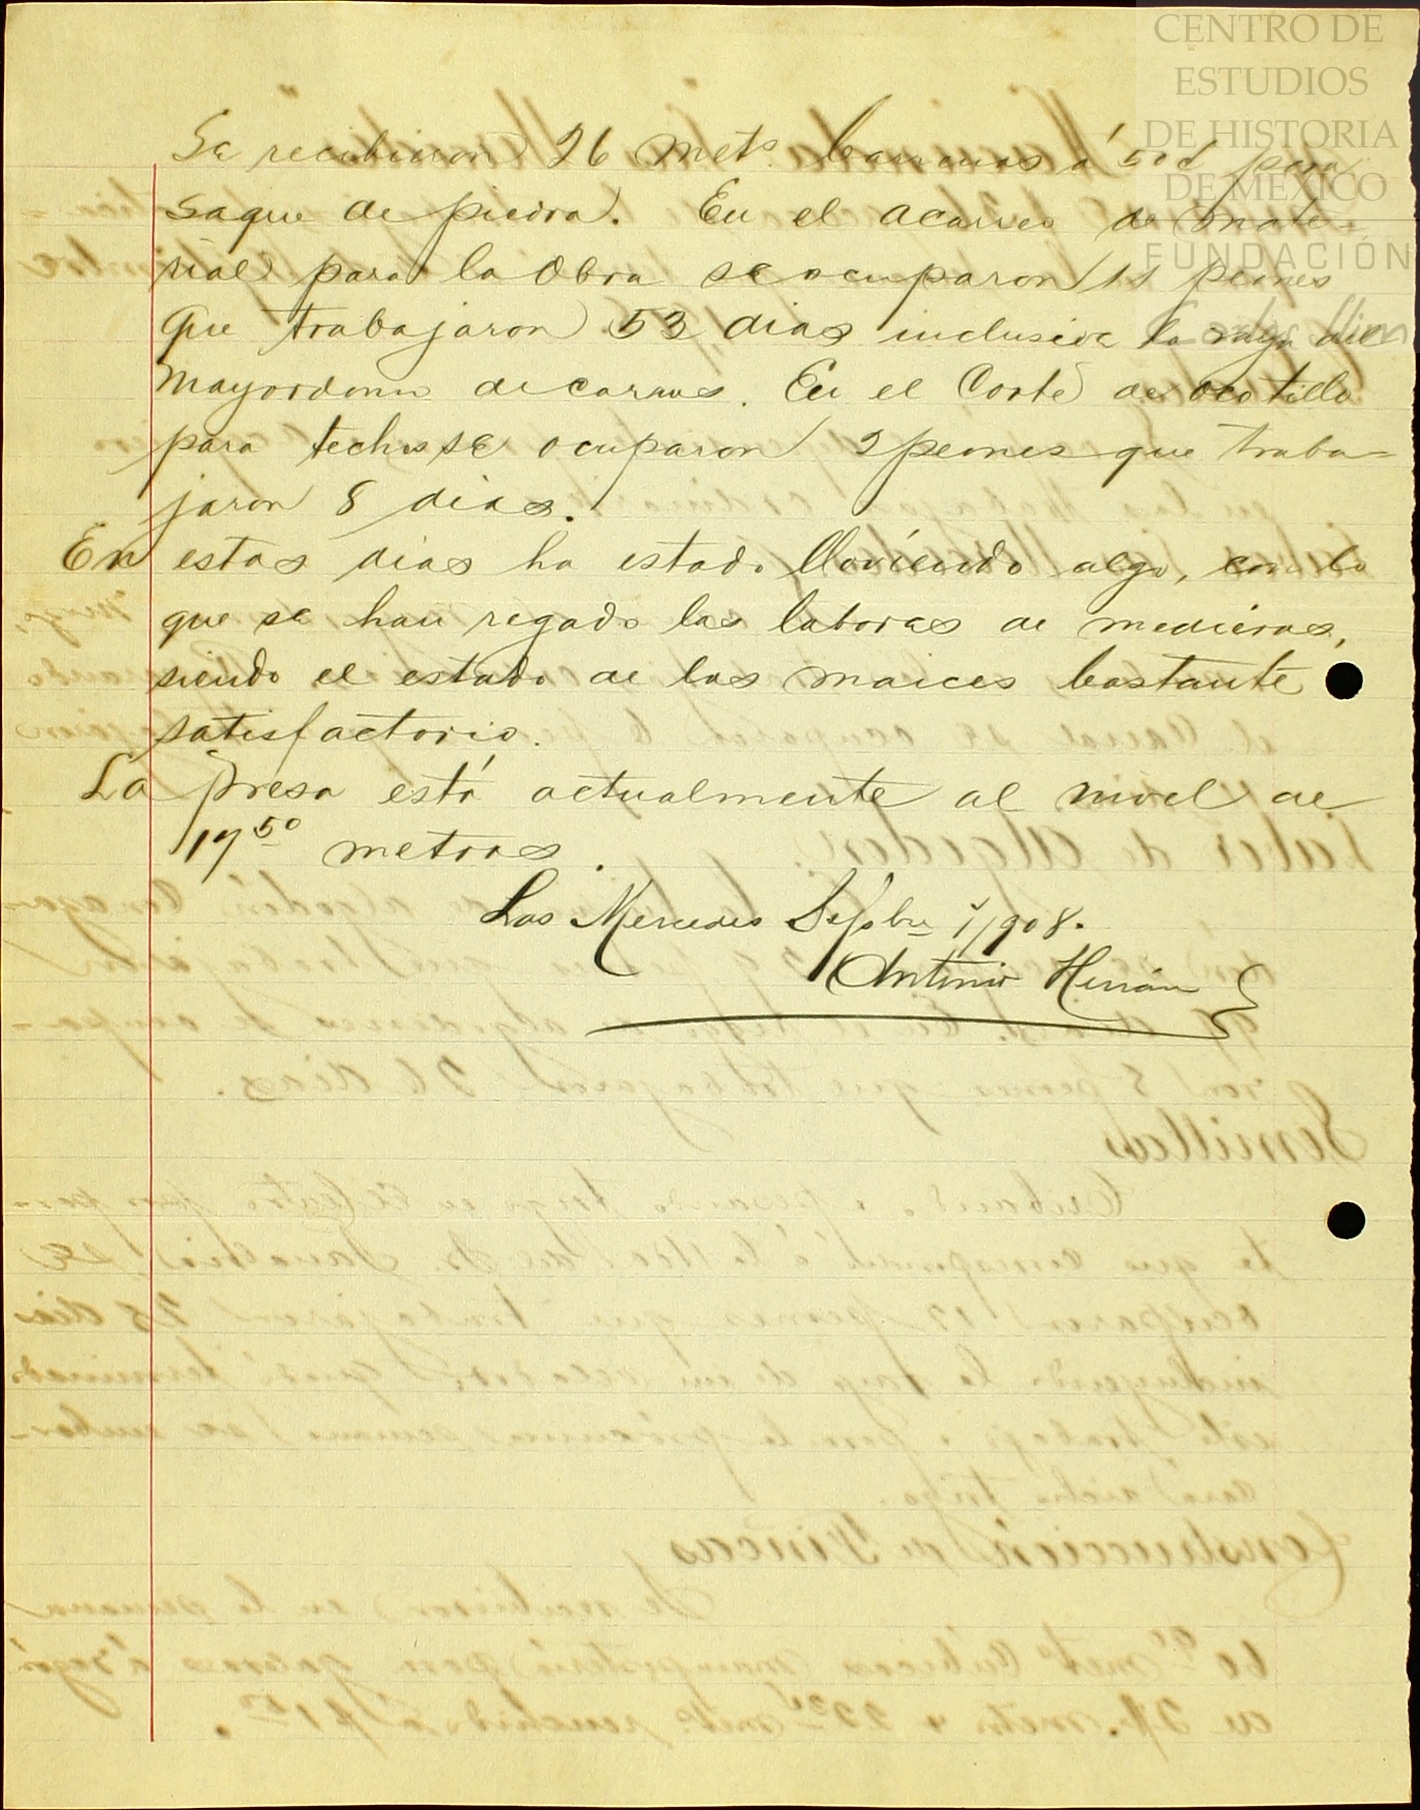 CENTRO DE
ESTUDIOS
DE HISTORIA
DE MÉXICO
FUNDACIÓN
Carlos Slim
Se recibieron 26 mets. barrenos á 50 c/ para
saque de piedra. En el acarreo de mate-
rial para la obra se ocuparon 11 peones
que trabajaron 53 dias inclusive la raya del
Mayordomo de carros. En el Corte de ocotillo
para techos se ocuparon 2 peones que traba-
jaron 8 dias.
En estos dias ha estado lloviendo algo, con lo
que se han regado las labores de medieros,
siendo el estado de los maices bastante
satisfactorio.
La presa está actualmente al nivel de
17 50 metros.
Las Mercedes Sepbre 1/908.
Antonio Hernán